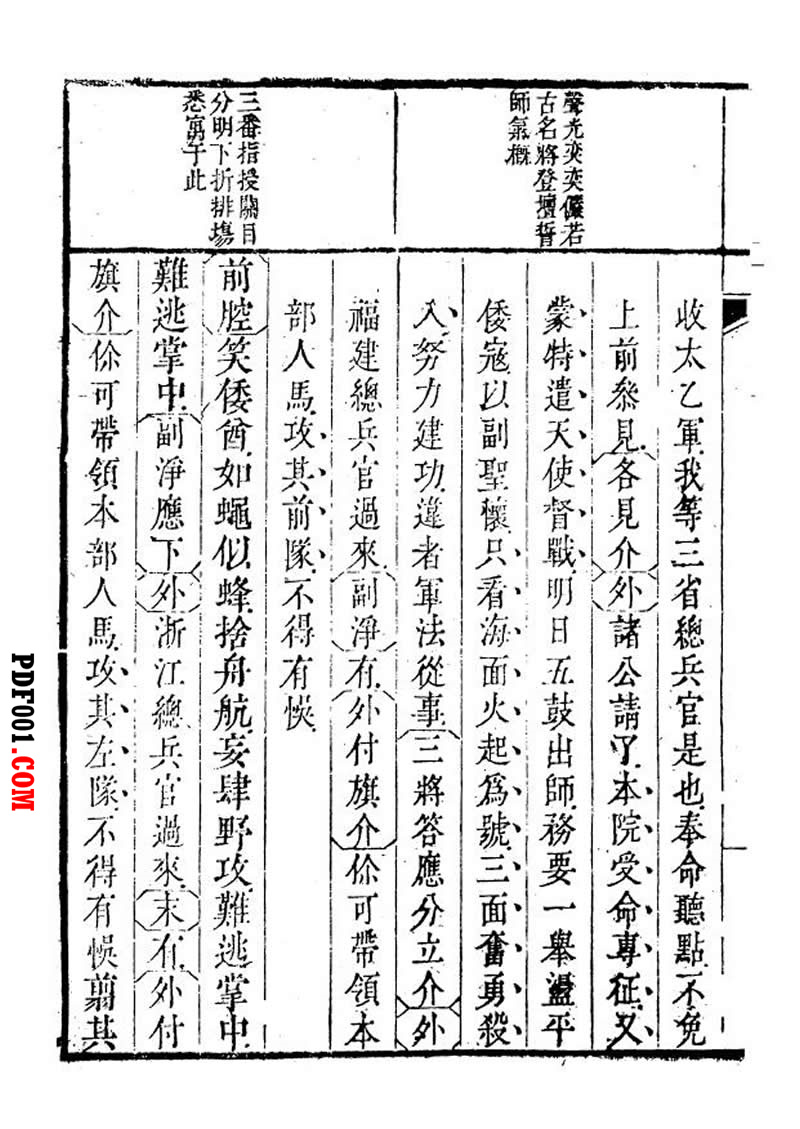 聲光奕奕儼若
古名將登壇誓
師氣概
三番指授關目
分明下折排塲
悉寓于此
收太乙軍我等三省總兵官是也奉命聽點不免
上前叅見各見介外諸公請了本院受命專征又
蒙特遣天使督戰明日五鼓出師務要一舉盪平
倭寇以副聖懷只看海面火起爲號三面奮勇殺
入努力建功違者軍法從事三將答應分立介外
福建總兵官過來副淨有外付旗介你可帶領本
部人馬攻其前隊不得有悞
前腔笑倭酋如蠅似蜂捨舟航妄肆野攻難逃掌中
難逃掌中副淨應下外浙江總兵官過來末有外付
旗介你可帶領本部人馬攻其左隊不得有悞翦其
PDF001.COM